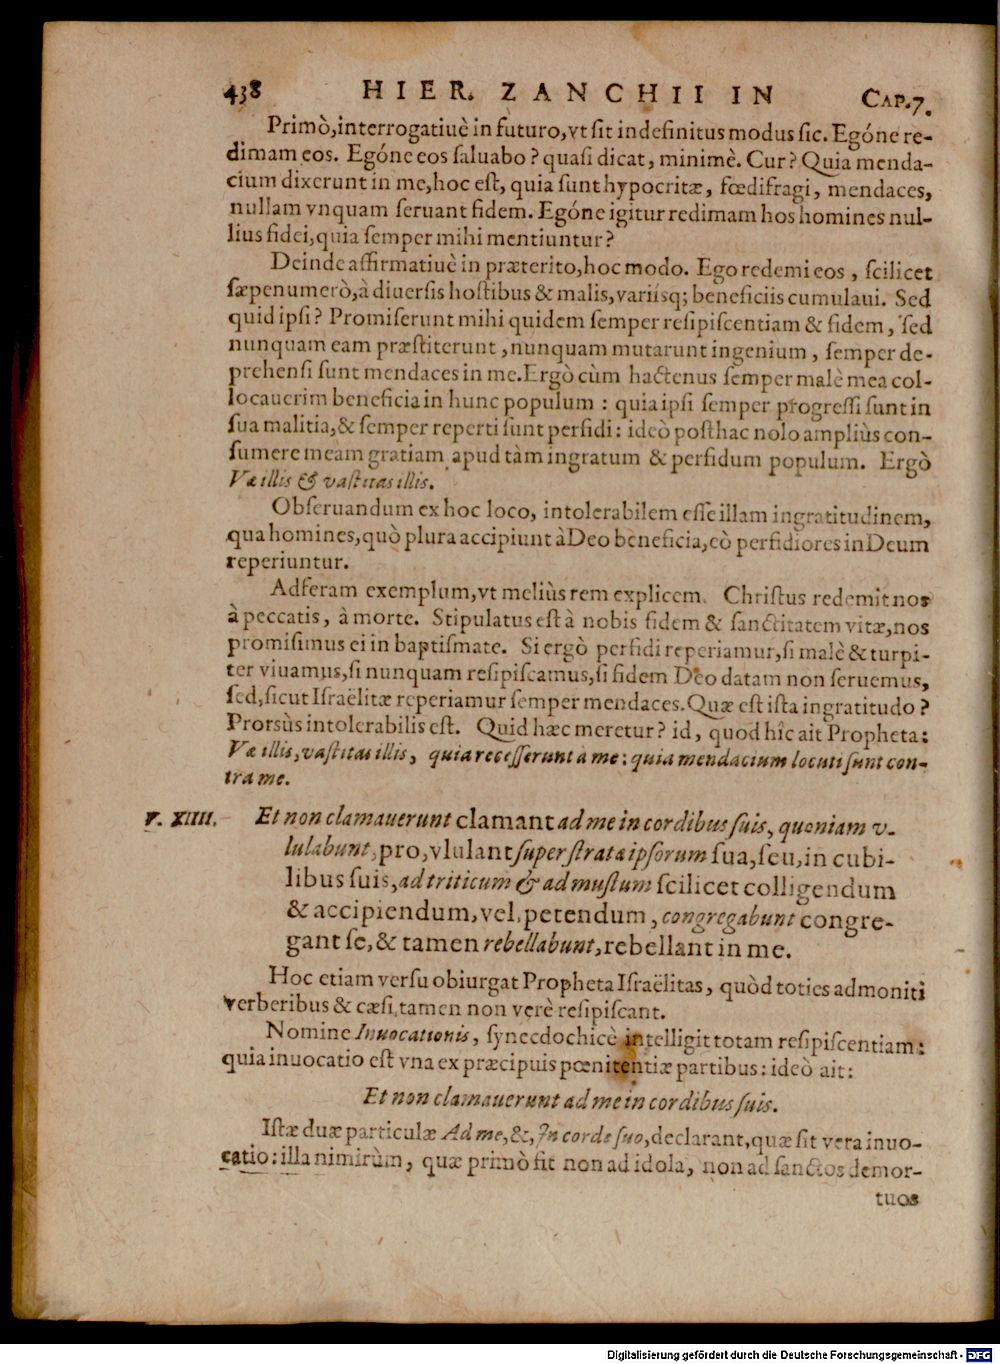 438 HIER. ZANCHII IN CAP.7.
Primò,interrogatiuè in futuro,vt ſit indefinitus modus ſic. Egóne re-
dimam eos. Egóne eos ſaluabo? quaſi dicat, minimè. Cur? Quia menda-
cium dixerunt in me,hoc eſt, quia ſunt hypocritæ, fœdifragi, mendaces,
nullam vnquam ſeruant fidem. Egóne igitur redimam hos homines nul-
lius fidei,quia ſemper mihi mentiuntur?
Deinde affirmatiuè in præterito,hoc modo. Ego redemi eos, ſcilicet
ſæpenumerò,à diuerſis hoſtibus & malis,variísq; beneficiis cumulaui. Sed
quid ipſi? Promiſerunt mihi quidem ſemper reſipiſcentiam & fidem, ſed
nunquam eam præſtiterunt, nunquam mutarunt ingenium, ſemper de-
prehenſi ſunt mendaces in me. Ergò cùm hactenus ſemper malè mea col-
locauerim beneficia in hunc populum: quia ipſi ſemper progreſſi ſunt in
ſua malitia,& ſemper reperti ſunt perfidi: ideò poſthac nolo ampliùs con-
ſumere meam gratiam apud tàm ingratum & perfidum populum. Ergò
Væ illis & vaſtitas illis.
Obſeruandum ex hoc loco, intolerabilem eſſe illam ingratitudinem,
qua homines,quò plura accipiunt à Deo beneficia,eò perfidiores in Deum
reperiuntur.
Adferam exemplum,vt meliùs rem explicem. Chriſtus redemit nos
à peccatis, à morte. Stipulatus eſt à nobis fidem & ſanctitatem vitæ,nos
promiſimus ei in baptiſmate. Si ergò perfidi reperiamur,ſi malè & turpi-
ter viuamus,ſi nunquam reſipiſcamus,ſi fidem Deo datam non ſeruemus,
ſed,ſicut Iſraëlitæ reperiamur ſemper mendaces. Quæ eſt iſta ingratitudo?
Prorsùs intolerabilis eſt. Quid hæc meretur? id, quod hîc ait Propheta:
Væ illis,vaſtitas illis, quia receſſerunt a me: quia mendacium locuti ſunt con-
tra me.
V. XIIII. Et non clamauerunt clamant ad me in cordibus ſuis, quoniam v-
lulabunt,pro,vlulant ſuper ſtrata ipſorum ſua,ſeu,in cubi-
libus ſuis,ad triticum & ad muſtum ſcilicet colligendum
& accipiendum,vel,petendum, congregabunt congre-
gant ſe,& tamen rebellabunt,rebellant in me.
Hoc etiam verſu obiurgat Propheta Iſraëlitas, quòd toties admoniti
verberibus & cæſi,tamen non verè reſipiſcant.
Nomine Inuocationis, ſynecdochicè intelligit totam reſipiſcentiam:
quia inuocatio eſt vna ex præcipuis pœnitentiæ partibus: ideò ait:
Et non clamauerunt ad me in cordibus ſuis.
Iſtæ duæ particulæ Ad me,&,In corde ſuo,declarant,quæ ſit vera inuo-
catio: illa nimirùm, quæ primò fit non ad idola, non ad ſanctos demor-
tuos
Digitalisierung gefördert durch die Deutsche Forschungsgemeinschaft - DFG